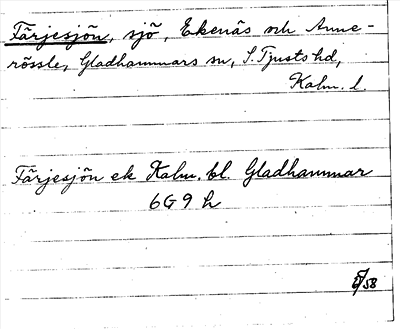 Färjesjön, sjö, Ekenäs och Anne-
rössle, Gladhammars sn, S. Tjusts hd,
Kalm. l.
Färjesjön ek Kalm. bl. Gladhammar
6G9h
/58